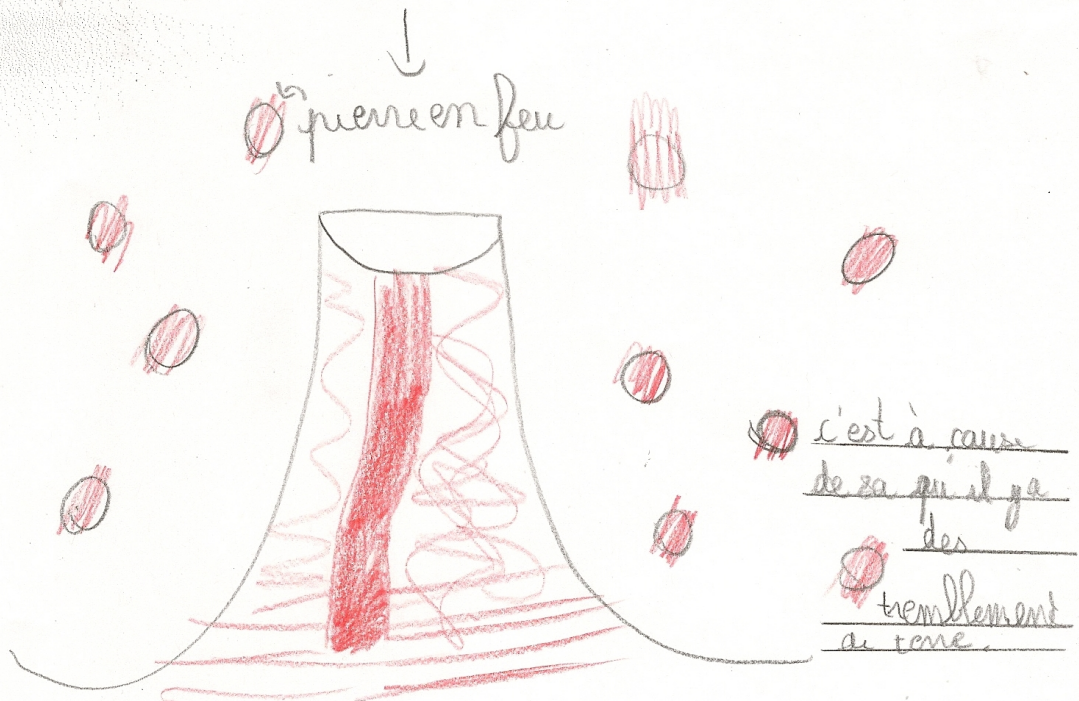 pierre en feu
c'est à cause
de sa qu'il y a
des
tremblement
de terre.